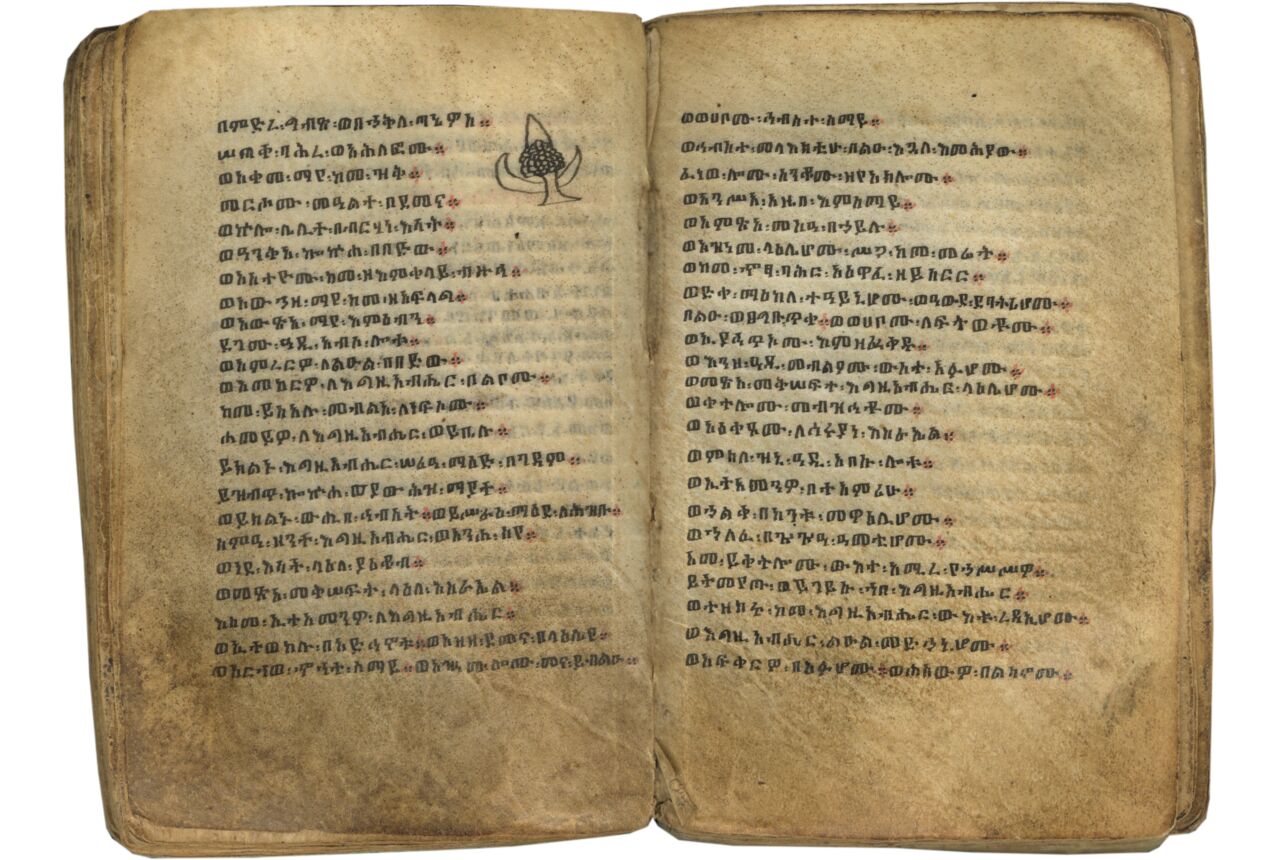 በምድረ፡ግብጽ፡ወበኀቅለ፡ጣኔዎስ።
ሠጠቀ፡ባሕረ፡ወአሕለፎሙ።
ወአቀመ፡ማየ፡ከመ፡ዝቅ።
መርሖሙ፡መዓልተ፡በደመና።
ወኵሎ፡ሌሊተ፡በብርሃነ፡እሳት።
ወዓንቅአ፡ኰኵሐ፡በበድው።
ወአስተዮሙ፡ከመ፡ዘእምቀላይ፡ብዙኅ።
ወአውኀዘ፡ማየ፡ከመ፡ዘአፍላግ።
ወአውጽአ፡ማየ፡እምዕብን።
ደገሙ፡ዓዲ፡አብሶ፡ሎቱ።
ወአምረርዎ፡ለልዑል፡በበድው።
ወአመከርዎ፡ለእግዚአብሔር፡በልቦሙ።
ከመ፡ይስአሉ፡መብልአ፡ለነፍሶሙ።
ሐመይዎ፡ለእግዚአብሔር፡ወይቤሉ።
ይክልኑ፡እግዚአብሔር፡ሠሪዓ፡ማዕድ፡በገዳም።
ይዝብጥ፡ኰኵሐ፡ወያውሕዝ፡ማያተ።
ወይክልኑ፡ውሂበ፡ኅብስት።ወይሥራዕ፡ማዕደ፡ለሕዝቡ።
ሰምዓ፡ዘንተ፡እግዚአብሔር፡ወአንሐሰየ።
ወነደ፡እሳት፡ላዕለ፡ያዕቆብ።
ወመጽአ፡መቅሠፍት፡ላዕለ፡እስራኤል።
እስመ፡ኢተአመንዎ፡ለእግዚአብሔር።
ወኢተወከሉ፡በአድኅኖቱ።ወአዘዘ፡ደመና፡በላዕሉ።
ወአርኀወ፡ኆኅተ፡ሰማይ።ወአዝነመ፡ሎሙ፡መና፡ይብልዑ።
ወወሀቦሙ፡ኅብስተ፡ሰማይ።
ወኅብስተ፡መላእክቲሁ፡በልዑ፡እጓለ፡እመሕያው።
ፈነወ፡ሎሙ፡ሥንቆሙ፡ዘየአክሎሙ።
ወአንሥአ፡አዜበ፡እምሰማይ።
ወአምጽአ፡መስዓ፡በኃይሉ።
ወአዝነመ፡ላዕሌሆሙ፡ሥጋ፡ከመ፡መሬት።
ወከመ፡ኆፃ፡ባሕር፡አዕዋፈ፡ዘይሰርር።
ወድቀ፡ማዕከለ፡ተዓይኒሆሙ፡ወዓውደ፡ደባትሪሆሙ።
በልዑ፡ወጸግቡ፡ጥቀ።ወወሀቦሙ፡ለፍትወቶሙ።
ወኢያኅጥኦሙ፡እምዘፈቀዱ።
ወእንዘ፡ዓዲ፡መብልዖሙ፡ውስተ፡አፉሆሙ።
ወመጽአ፡መቅሠፍተ፡እግዚአብሔር፡ላዕሌሆሙ።
ወቀተሎሙ፡መብዝኅቶሙ።
ወአዕቀፆሙ፡ለኅሩያነ፡እስራኤል።
ወምስለ፡ዝኒ፡ዓዲ፡አበሱ፡ሎቱ።
ወኢተአመንዎ፡በተአምሪሁ።
ወኀልቀ፡በከንቱ፡መዋዕሊሆሙ።
ወኀለፈ፡በጕጕዓ፡ዓመቲሆሙ።
አመ፡ይቀትሎሙ፡ውእተ፡አሚረ፡የኀሥሥዎ።
ይትመየጡ፡ወይገይሱ፡ኀበ፡እግዚአብሔር።
ወተዘከሩ፡ከመ፡እግዚአብሔር፡ውእቱ፡ረዳኢሆሙ።
ወእግዚአብሔር፡ልዑል፡መድኃኒሆሙ።
ወአፍቀርዎ፡በአፉሆሙ።ወሐሰውዎ፡በልሳኖሙ።